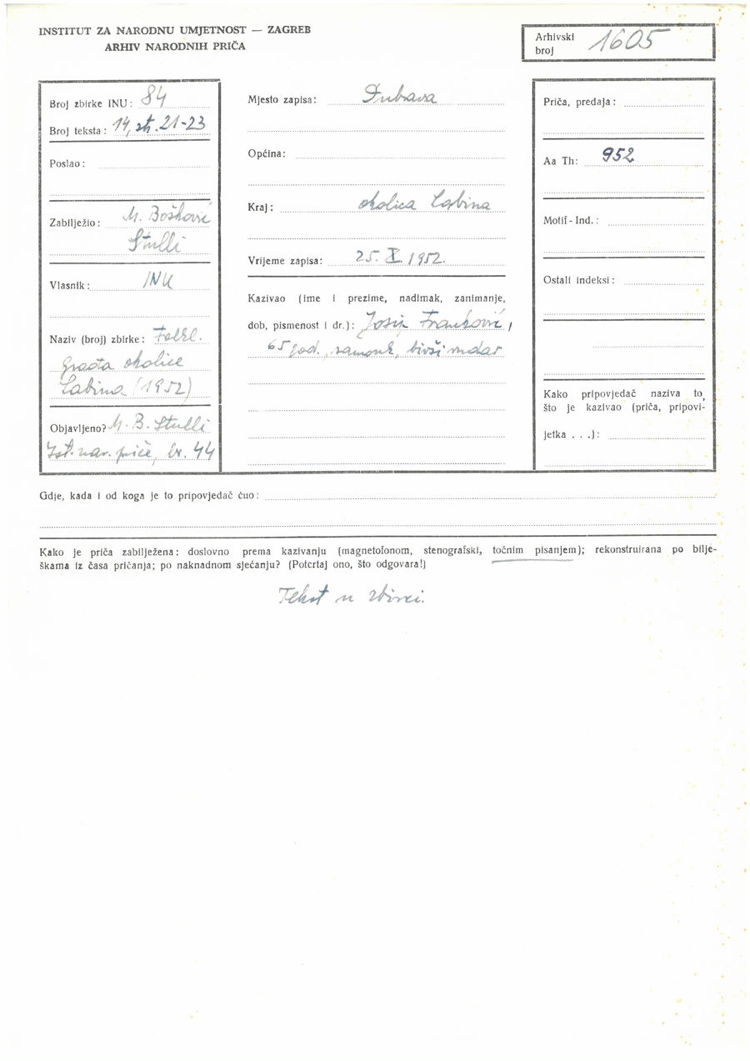 INSTITUT ZA NARODNU UMJETNOST — ZAGREB
ARHIV NARODNIH PRIČA
Arhivski
broj 1605
Broj zbirke INU: 84
Broj teksta: 14, str. 21-23
Poslao:
Zabilježio: M. Bošković
Stulli
Vlasnik: INU
Naziv (broj) zbirke: Folkl.
građa okolice
Labina (1952)
Objavljeno? M. B. Stulli
Ist. nar. priče, br. 44
Mjesto zapisa: Dubrava
Općina:
Kraj: okolica Labina
Vrijeme zapisa: 25. X. 1952.
Kazivao (ime i prezime, nadimak, zanimanje,
dob, pismenost i dr.): Josip Franković,
65 god., samouk, bivši rudar
Priča, predaja:
Aa Th: 952
Motif-Ind.:
Ostali indeksi:
Kako pripovjedač naziva to,
što je kazivao (priča, pripovi-
jetka . . .):
Gdje, kada i od koga je to pripovjedač čuo:
Kako je priča zabilježena: doslovno prema kazivanju (magnetofonom, stenografski, točnim pisanjem); rekonstruirana po bilje-
škama iz časa pričanja; po naknadnom sjećanju? (Potcrtaj ono, što odgovara!)
Tekst u zbirci.